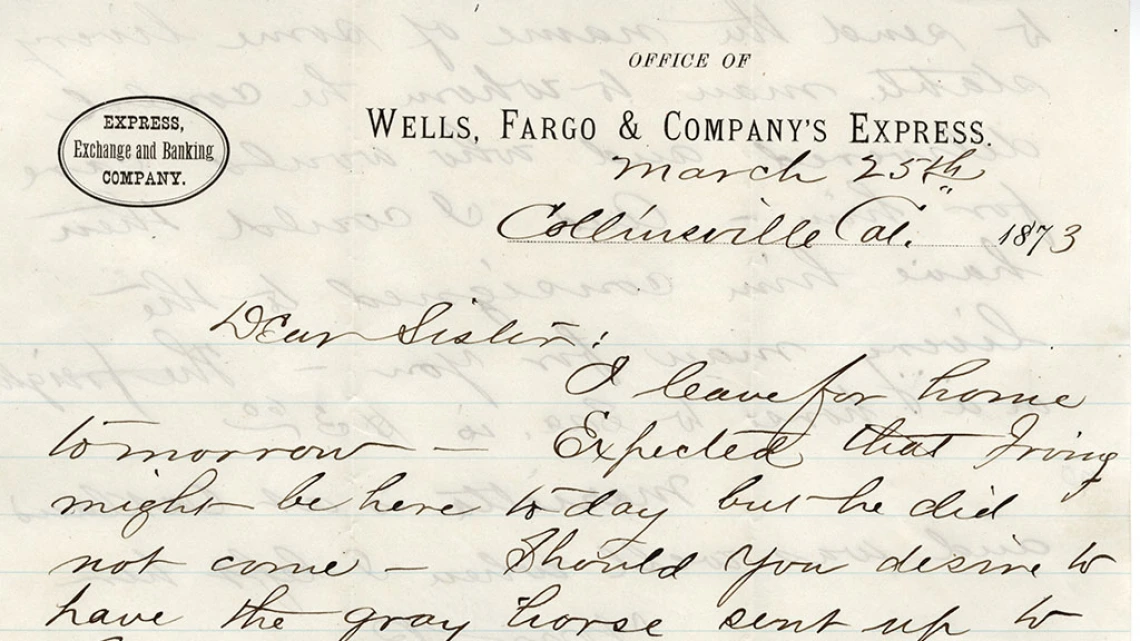 OFFICE OF
WELLS, FARGO & COMPANY'S EXPRESS.
EXPRESS,
Exchange and Banking
COMPANY.
March 25th
Collinsville Cal. 1873
Dear Sister:
I leave for home
tomorrow — Expected that Irving
might be here to day but he did
not come — Should you desire to
have the gray horse sent up to